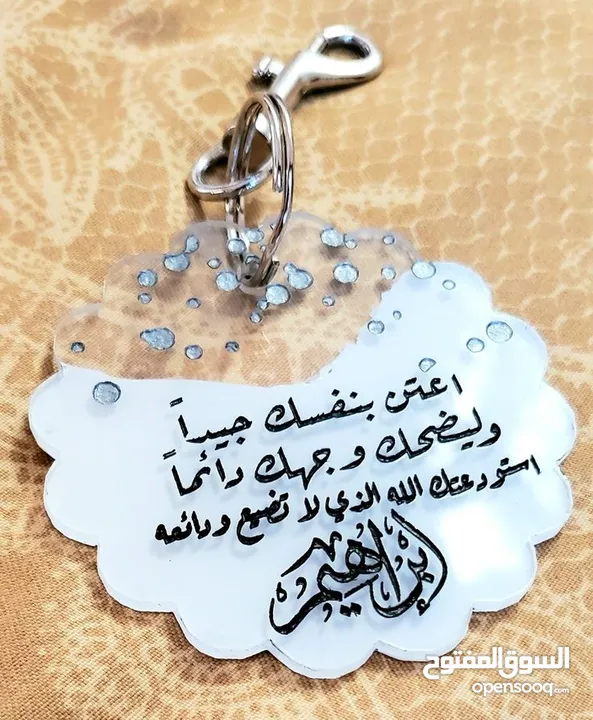 اعتن بنفسك جيداً
وليضحك وجهك دائماً
استودعتك الله الذي لا تضيع ودائعه
إبراهيم
السوق المفتوح
opensooq.com